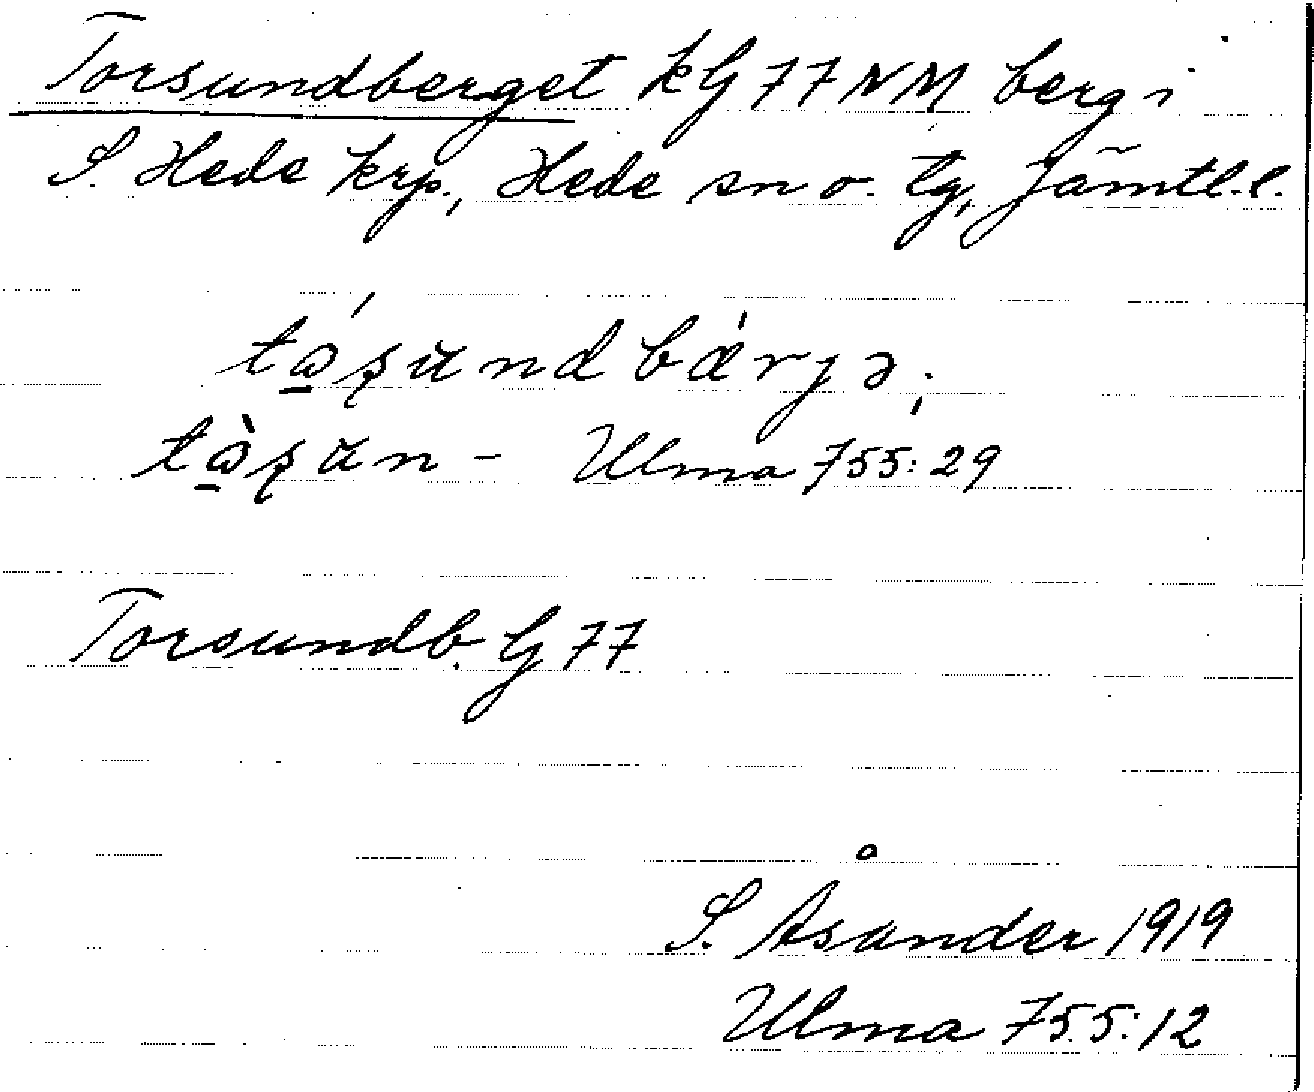 Torsundberget kG 77 NM berg i
S. Hede krp., Hede sn o. tg, Jämtl. l.
tɷ̠́ʂŭndbǽrjə;
tɷ̠̀ʂŭn- Ulma 755:29
Torsundb. G 77
S. Åsander 1919
Ulma 755:12